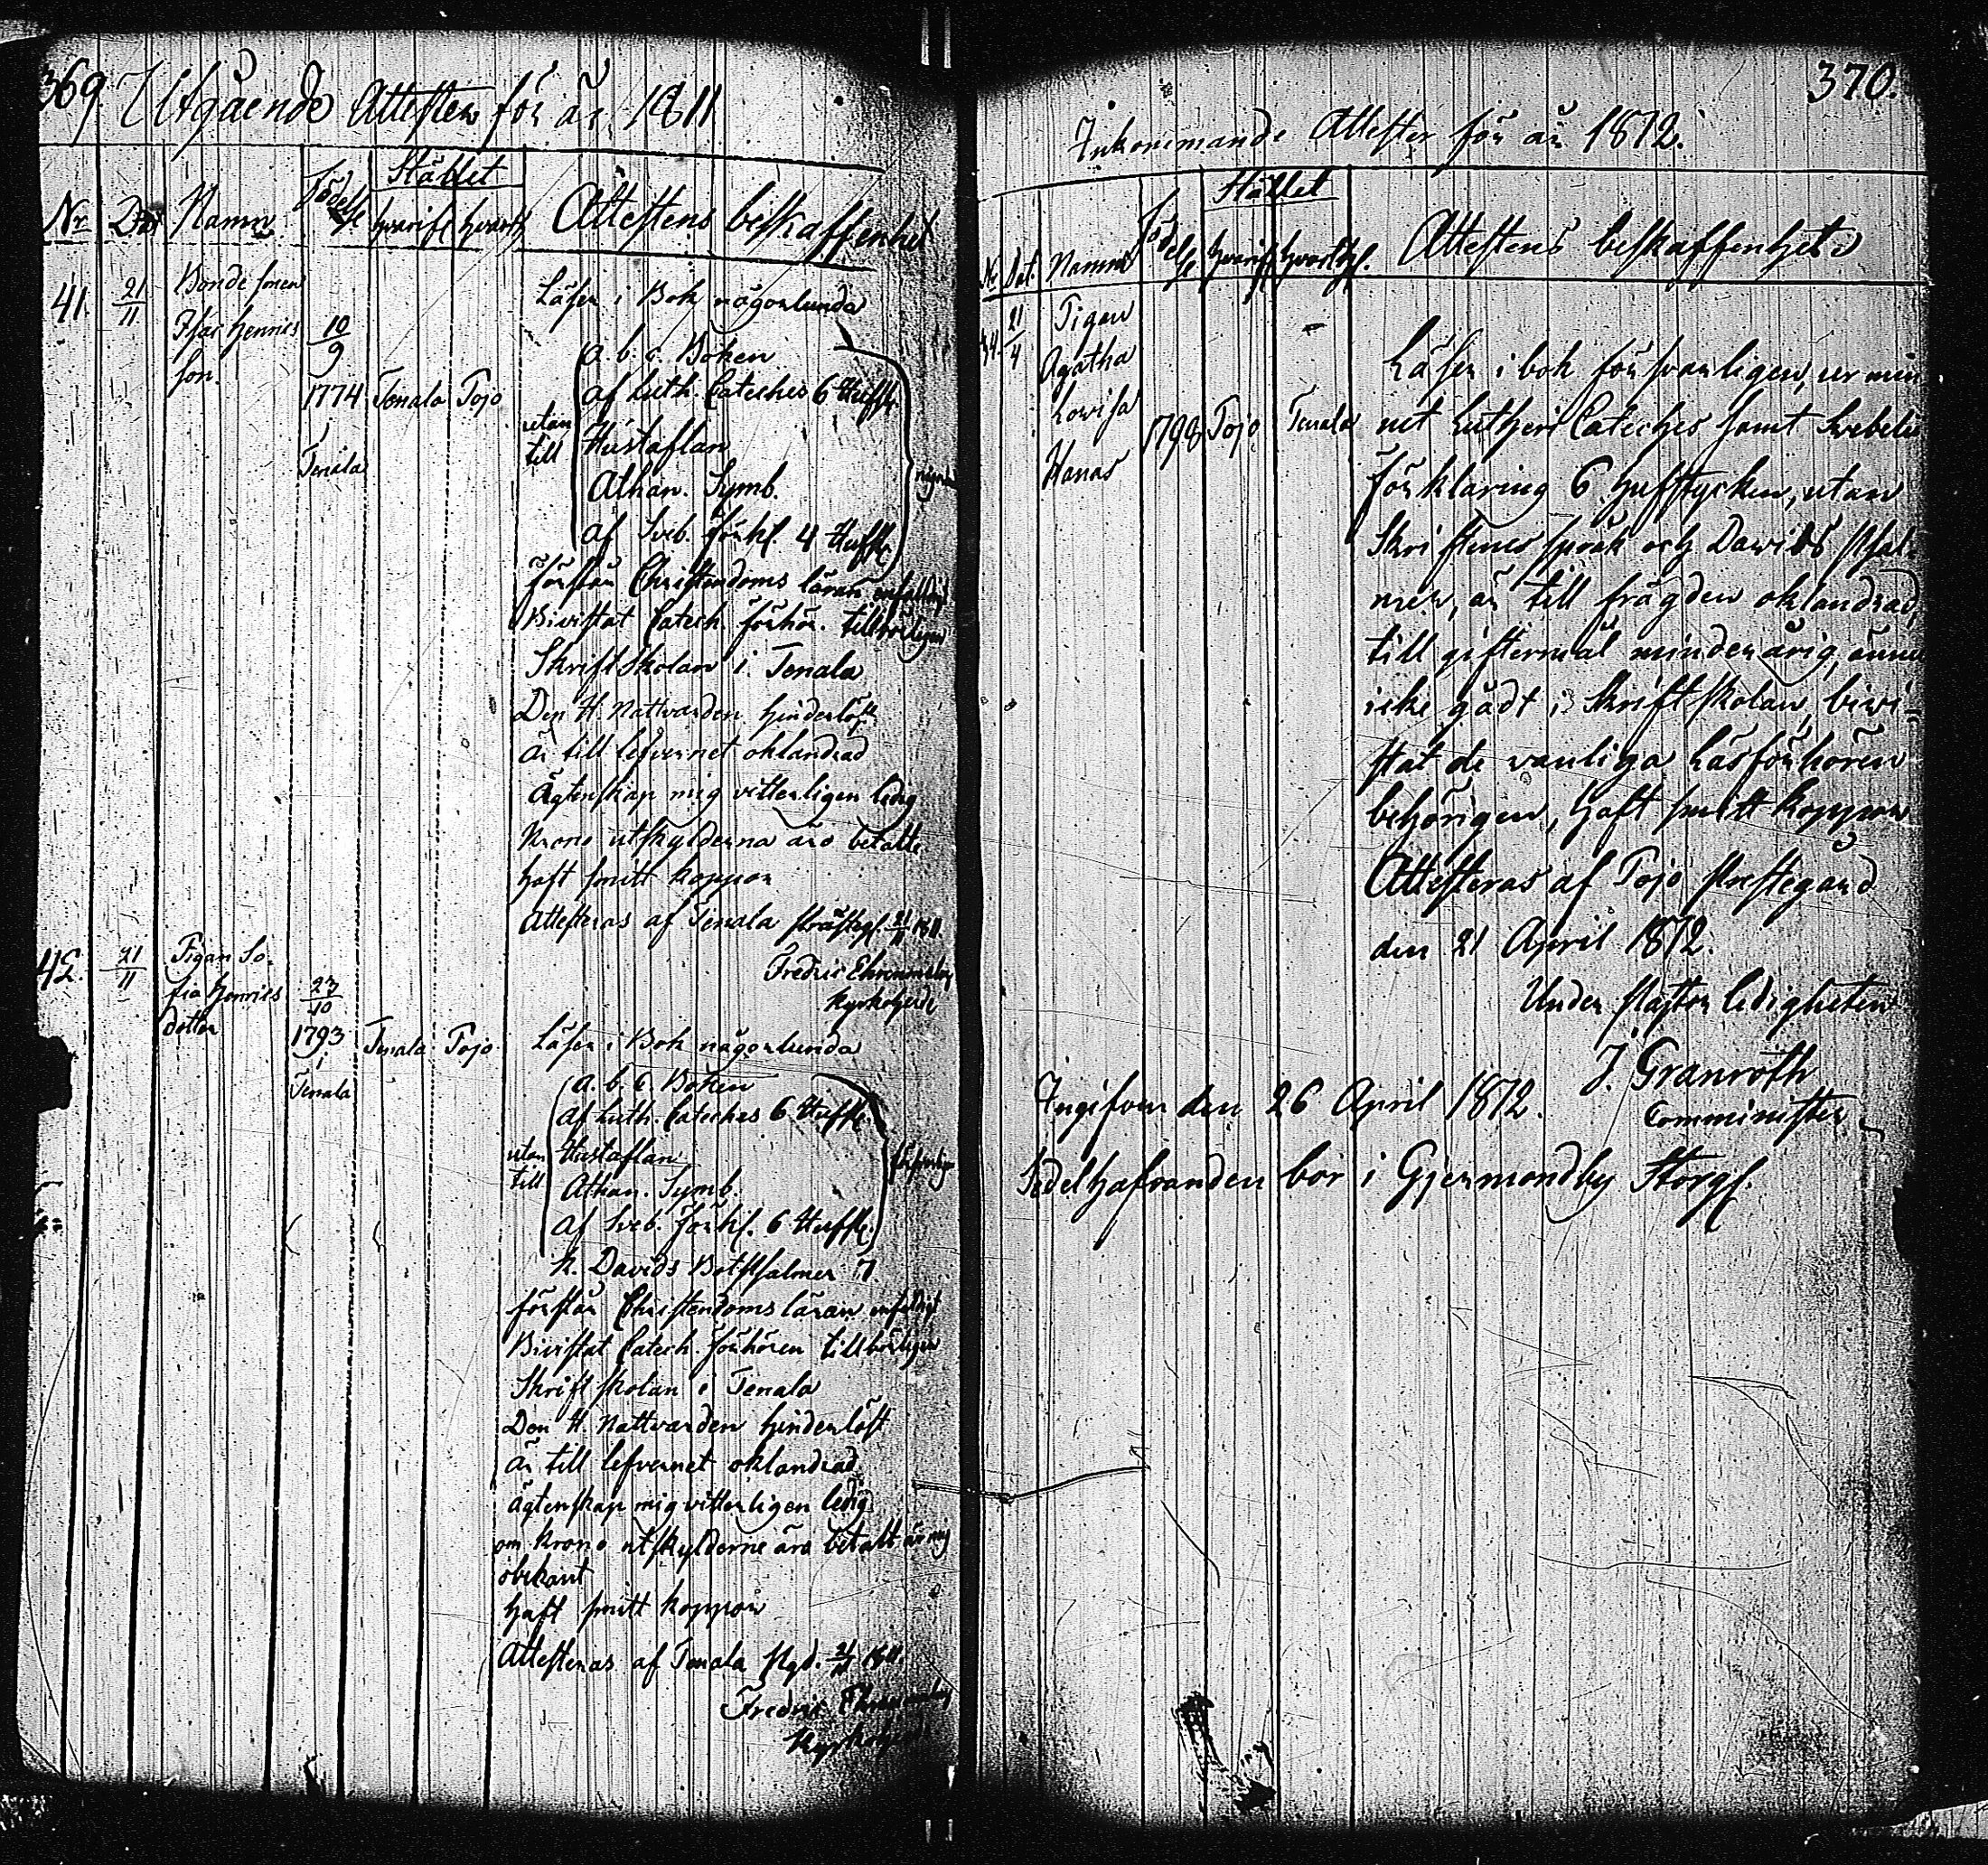 369. Utgående Attester för år 1811
Stället
No Dat Namn Födelse hvarifr hvart Attestens beskaffenhet
41. 21/11 Bonde sonen
Isac Henrics
son. 10/9
1774 Tenala Pojo
Tenala
Läser i Bok någorlunda
a. b. c. Boken
af Luth. Cateches 6 Hufst.
utan
till
Hustaflan
Athan. Symb.
af Sveb. förkl. 4 Hufst.
förstår Christendoms läran enfaldigt
Bivistat Catech. förhör. tillbörligen
Skrift Skolan i Tenala
Den H. Nattvarden hinderlöst
är till lefvernet oklandrad
Ägtenskap mig vitterligen ledig
Krono utskylderna äro betalte
haft smitt koppor
Attesteras af Tenala prästgd. 21/11 1811.
Fredric
Kyrkoherde
42. 21/11 Pigan So-
fia Henrics
dotter 23/10
1793 Tenala Pojo
Tenala
Läser i Bok någorlunda
a. b. c. Boken
af Luth. Cateches 6 Hufst.
utan
till
Hustaflan
Athan. Symb.
af Sveb. förkl. 6 Hufst.
försvarligen
K. Davids Botpsalmer 7.
förstår Christendoms läran enfaldigt
Bivistat Catech. förhören tillbörligen
Skrift skolan i Tenala
Den H. Nattvarden hinderlöst
är till lefvernet oklandrad
ägtenskap mig vitterligen ledig
om Krono utskylderne äro betalt är mig
obekant
haft smitt koppor
Attesteras af Tenala Pgd. 21/11 1811.
Fredric
Kyrkoherde
370.
Inkommande Attester för år 1812.
Stället
No Dat. Namn Födelse hvarifr hvarthf. Attestens beskaffenhet
34. 21/4 Pigan
Agatha
Lovisa
Hanas
1798 Pojo Tenala
Läser i bok försvarligen, ur min
net Lutheri Cateches samt Svebelii
förklaring 6 hufstycken, utan
Skriftenes språk och Davids psal-
mer, är till frägden oklandrad,
till giftermål minder årig, ännu
icke gådt i Skriftskolan, bivi-
stat de vanliga Läsförhören
behörigen, haft smitt koppor
Attesteras af Pojo prestegård
den 21 April 1812.
Under pastor ledigheten
J. Granroth
Comminister
Ingifven den 26 April 1812.
Sedelhafvanden bor i Gjermondby Storgf.